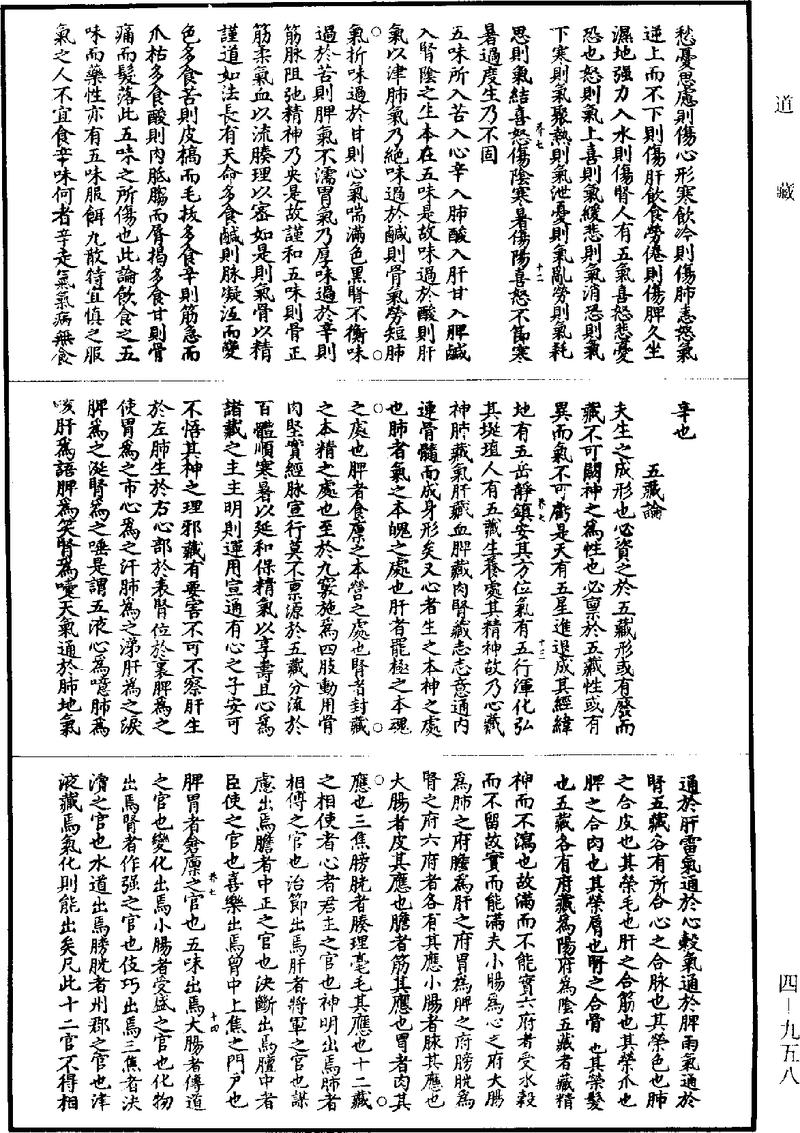 道藏
愁憂思慮則傷心形寒飲冷則傷肺恚怒氣
逆上而不下則傷肝飲食勞倦則傷脾久坐
濕地强力入水則傷腎人有五氣喜怒悲憂
恐也怒則氣上喜則氣緩悲則氣消恐則氣
下寒則氣聚熱則氣泄憂則氣亂勞則氣耗
卷七
十二
思則氣結喜怒傷陰寒暑傷陽喜怒不節寒
暑過度生乃不固
五味所入苦入心辛入肺酸入肝甘入脾鹹
入腎陰之生本在五味是故味過於酸則肝
氣以津肺氣乃絶味過於鹹則骨氣勞短肺
氣折味過於甘則心氣喘滿色黑腎不衡味
過於苦則脾氣不濡胃氣乃厚味過於辛則
筋脉阻弛精神乃央是故謹和五味則骨正
筋柔氣血以流腠理以密如是則氣骨以精
謹道如法長有天命多食鹹則脉凝泣而變
色多食苦則皮槁而毛拔多食辛則筋急而
爪枯多食酸則肉胝䐢而脣揭多食甘則骨
痛而髮落此五味之所傷也此論飲食之五
味而藥性亦有五味服餌九散特宜慎之服
氣之人不宜食辛味何者辛走氣氣病無食
辛也
五藏論
夫生之成形也必資之於五藏形或有廢而
藏不可闕神之爲性也必禀於五藏性或有
異而氣不可虧是天有五星進退成其經緯
卷七
十三
地有五岳靜鎮安其方位氣有五行渾化弘
其埏埴人有五藏生養處其精神故乃心藏
神肺藏氣肝藏血脾藏肉腎藏志志意通内
連骨髓而成身形矣又心者生之本神之處
也肺者氣之本魄之處也肝者罷極之本魂
之處也脾者倉廪之本營之處也腎者封藏
之本精之處也至於九竅施爲四肢動用骨
肉堅實經脉宣行莫不禀源於五藏分流於
百體順寒暑以延和保精氣以享壽且心爲
諸藏之主主明則運用宣通有心之子安可
不悟其神之理邪藏有要害不可不察肝生
於左肺生於右心部於表腎位於裏脾爲之
使胃爲之市心爲之汗肺爲之涕肝爲之淚
脾爲之涎腎爲之唾是謂五液心爲噫肺爲
咳肝爲語脾爲笑腎爲嚏天氣通於肺地氣
通於肝雷氣通於心穀氣通於脾雨氣通於
腎五藏各有所合心之合脉也其榮色也肺
之合皮也其榮毛也肝之合筋也其榮爪也
脾之合肉也其榮脣也腎之合骨也其榮髮
也五藏各有府藏爲陽府爲陰五藏者藏精
神而不瀉也故滿而不能實六府者受水穀
而不留故實而能滿夫小腸爲心之府大腸
爲肺之府膽爲肝之府胃爲脾之府膀胱爲
腎之府六府者各有其應小腸者脉其應也
大腸者皮其應也膽者筋其應也胃者肉其
應也三焦膀胱者腠理毫毛其應也十二藏
之相使者心者君主之官也神明出焉肺者
相傅之官也治節出焉肝者將軍之官也謀
慮出焉膽者中正之官也决斷出焉膻中者
臣使之官也喜樂出焉曾中上焦之門户也
卷七
十四
脾胃者倉廪之官也五味出焉大腸者傳道
之官也變化出焉小腸者受盛之官也化物
出焉腎者作强之官也伎巧出焉三焦者决
瀆之官也水道出焉膀胱者州郡之官也津
液藏焉氣化則能出矣凡此十二官不得相
四－九五八